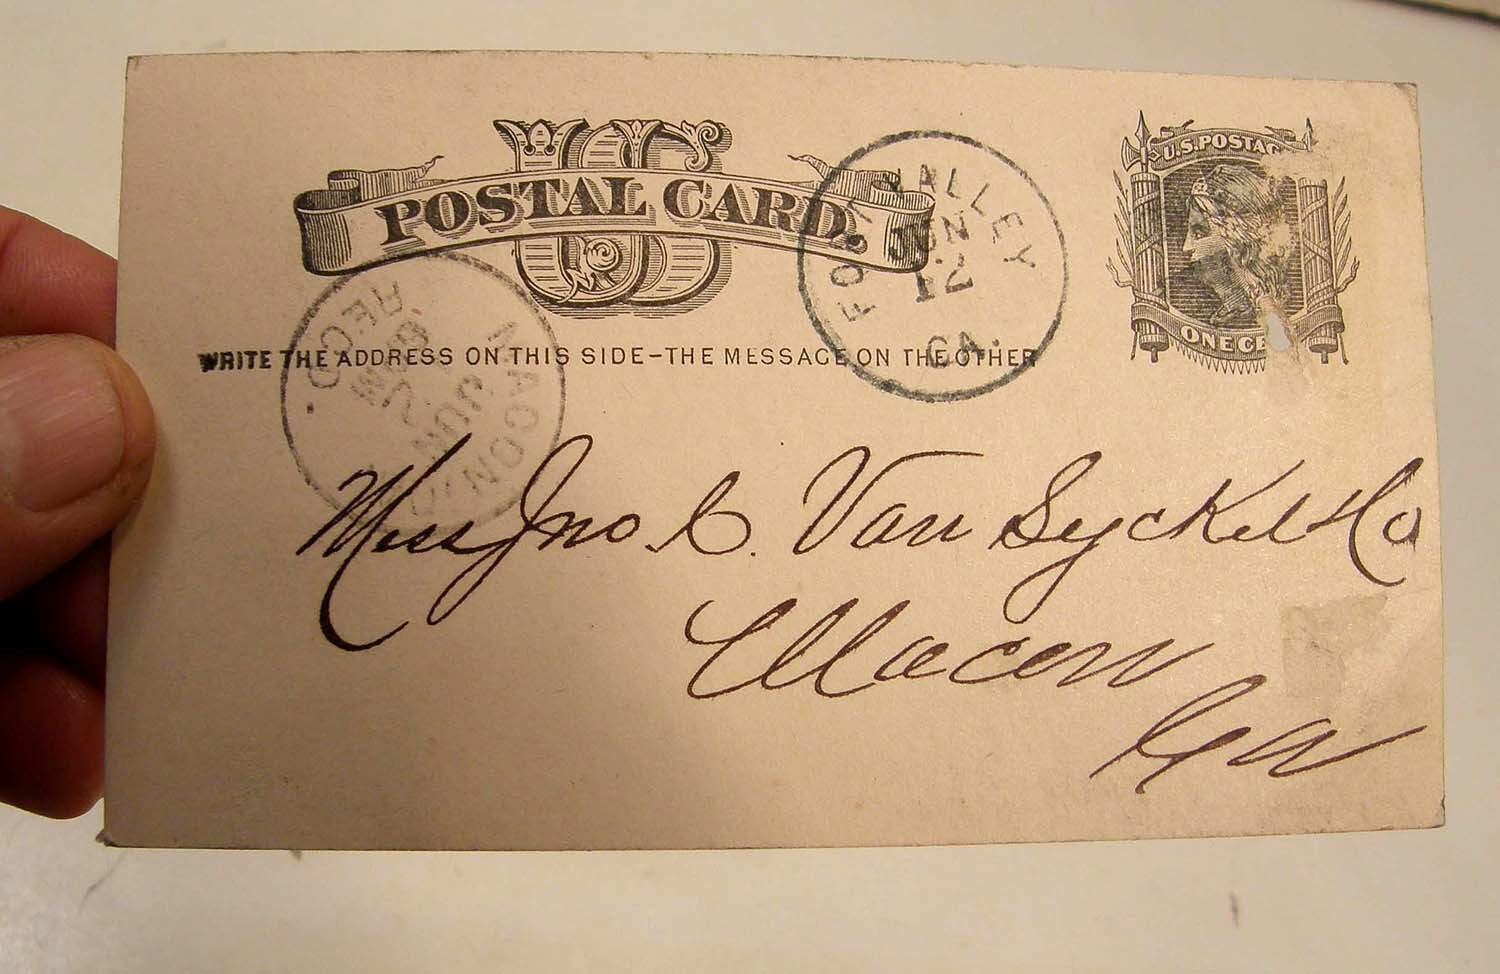 US
POSTAL CARD.
U.S. POSTAGE
ONE CE
FORT VALLEY
JUN
12
GA.
WRITE THE ADDRESS ON THIS SIDE–THE MESSAGE ON THE OTHER
MACON
JUN
REC'D.
Mess Jno. C. Van Syckel & Co
Macon
Ga